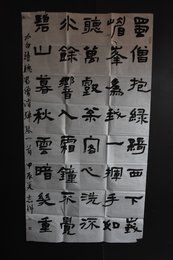 蜀僧抱綠綺西下峩
嵋峯為我一揮手如
聽萬壑松客心洗流
水餘響入霜鐘不覺
碧山暮秋雲暗幾重
太白詩聽蜀僧濬彈琴一首 甲辰夏